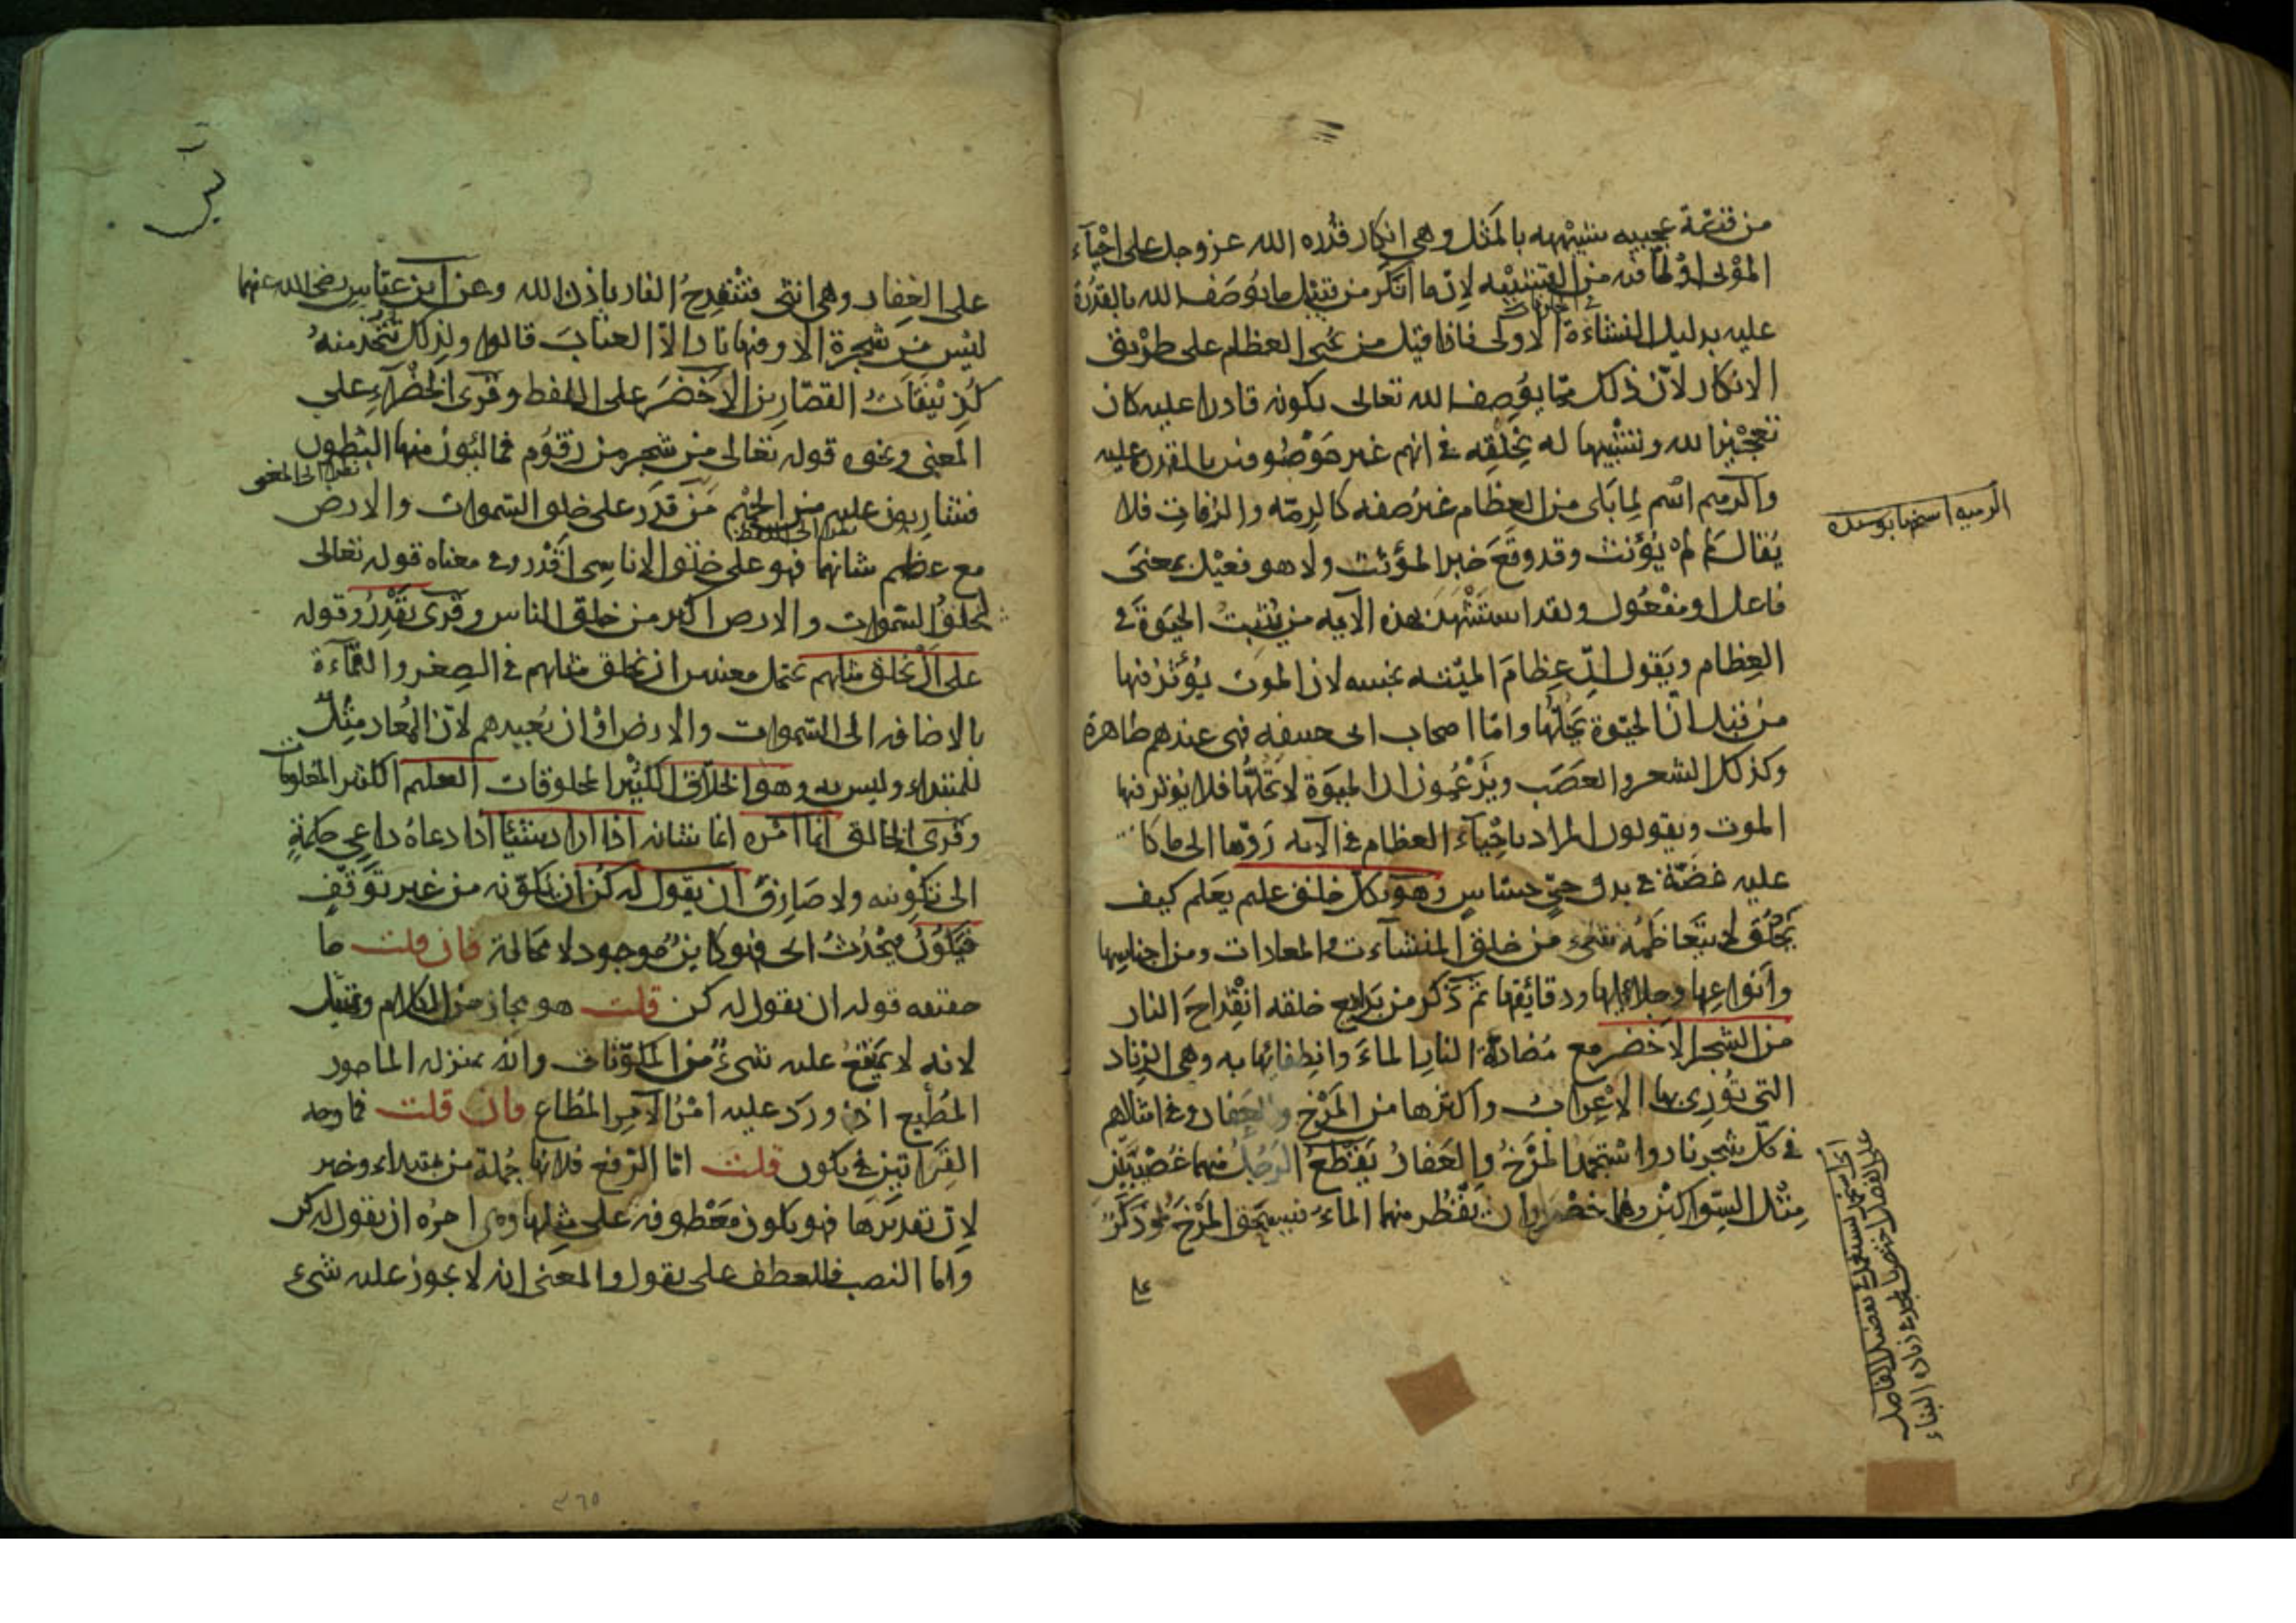 من قصة عجيبة شبيهة بالمثل وهي انكار قدرة الله عز وجل على احياء
الموتى او لما فيه من التشبيه لان ما انكر من قبيل ما يوصف الله بالقدرة
عليه بدليل النشاءة الاولى فاذا قيل من يحيي العظام على طريق
الانكار لان ذلك مما يوصف الله تعالى بكونه قادرا عليه كان
تعجيزا لله وتشبيها له بخلقه في انهم غير موصوفين بالقدرة عليه
والرميم اسم لما بلى من العظام غير صفه كالرمة والرفات فلا
يقال لم لم يؤنث وقد وقع خبرا لمؤنث ولا هو فعيل بمعنى
فاعل او مفعول ولقد استشهد بهذه الآيه من يثبت الحيوة في
العظام ويقول ان عظام الميتة نجسه لان الموت يؤثر فيها
من قبل ان الحيوة تحلها واما اصحاب ابى حنيفه فهى عندهم طاهرة
وكذلك الشعر والعصب ويزعمون ان الحيوة لا تحلها فلا يؤثر فيها
الموت ويقولون المراد باحياء العظام في الآيه ردها الى ما كانت
عليه غضة في بدن حي حساس وهو بكل خلق عليم يعلم كيف
يخلق لا يتعاظمه شيء من خلق المنشآت والمعادات ومن اجناسها
وانواعها وجلائلها ودقائقها ثم ذكر من بدايع خلقه انقداح النار
من الشجر الاخضر مع مضادة النار الماء وانطفائها به وهي الزناد
التي تورى بها الاعراب واكثرها من المرخ والعفار وفي امثالهم
في كل شجر نار واستمجد المرخ والعفار يقطع الرجل منهما غصنين
مثل السواكين وهما خضراوان يقطر منهما الماء فيسحق المرخ وهو ذكر
على
الرميم اسم لما بلى
على العفار وهي انثى فتنقدح النار باذن الله وعن ابن عباس رضى الله عنهما
ليس من شجرة الا وفيها نار الا العناب قالوا ولذلك تتخذ منه
كذينقات القصارين الاخضر على اللفظ وقرى الخضراء على
المعنى ونحوه قوله تعالى من شجر من زقوم فمالئون منها البطون
فشاربون عليه من الحميم من قدر على خلق السموات والارض
مع عظم شانهما فهو على خلق الاناسى اقدر وفي معناه قوله تعالى
لخلق السموات والارض اكبر من خلق الناس وقرى يقدر وقوله
على ان يخلق مثلهم يحتمل معنيين ان يخلق مثلهم في الصغر والقماءة
بالاضافه الى السموات والارض او ان يعيدهم لان المعاد مثل
للمبتداء وليس به وهو الخلاق الكثير المخلوقات العليم الكثير المعلومات
وقرى الخالق انما امره انما شانه اذا اراد شيئا اذا دعاه داعى حكمة
الى تكوينه ولا صارف ان يقول له كن ان يكونه من غير توقف
فيكون فيحدث اى فهو كاين موجود لا محالة فان قلت ما
حقيقه قوله ان يقول له كن قلت هو مجاز من الكلام وتمثيل
لانه لا يمتنع عليه شيء من المكونات وانه بمنزله المامور
المطيع اذا ورد عليه امر الآمر المطاع فان قلت فما وجه
القراتين في يكون قلت اما الرفع فلانها جملة من مبتداء وخبر
لان تقديرها فهو يكون معطوفة على مثلها وهى امره ان يقول له كن
واما النصب فللعطف على يقول والمعنى انه لا يجوز عليه شىء
٣٦٥